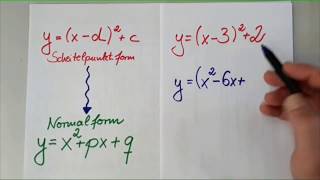 y=(x-d)²+c
Scheitelpunktform
Normalform
y=x²+px+q
y=(x-3)²+2
y=(x²-6x+